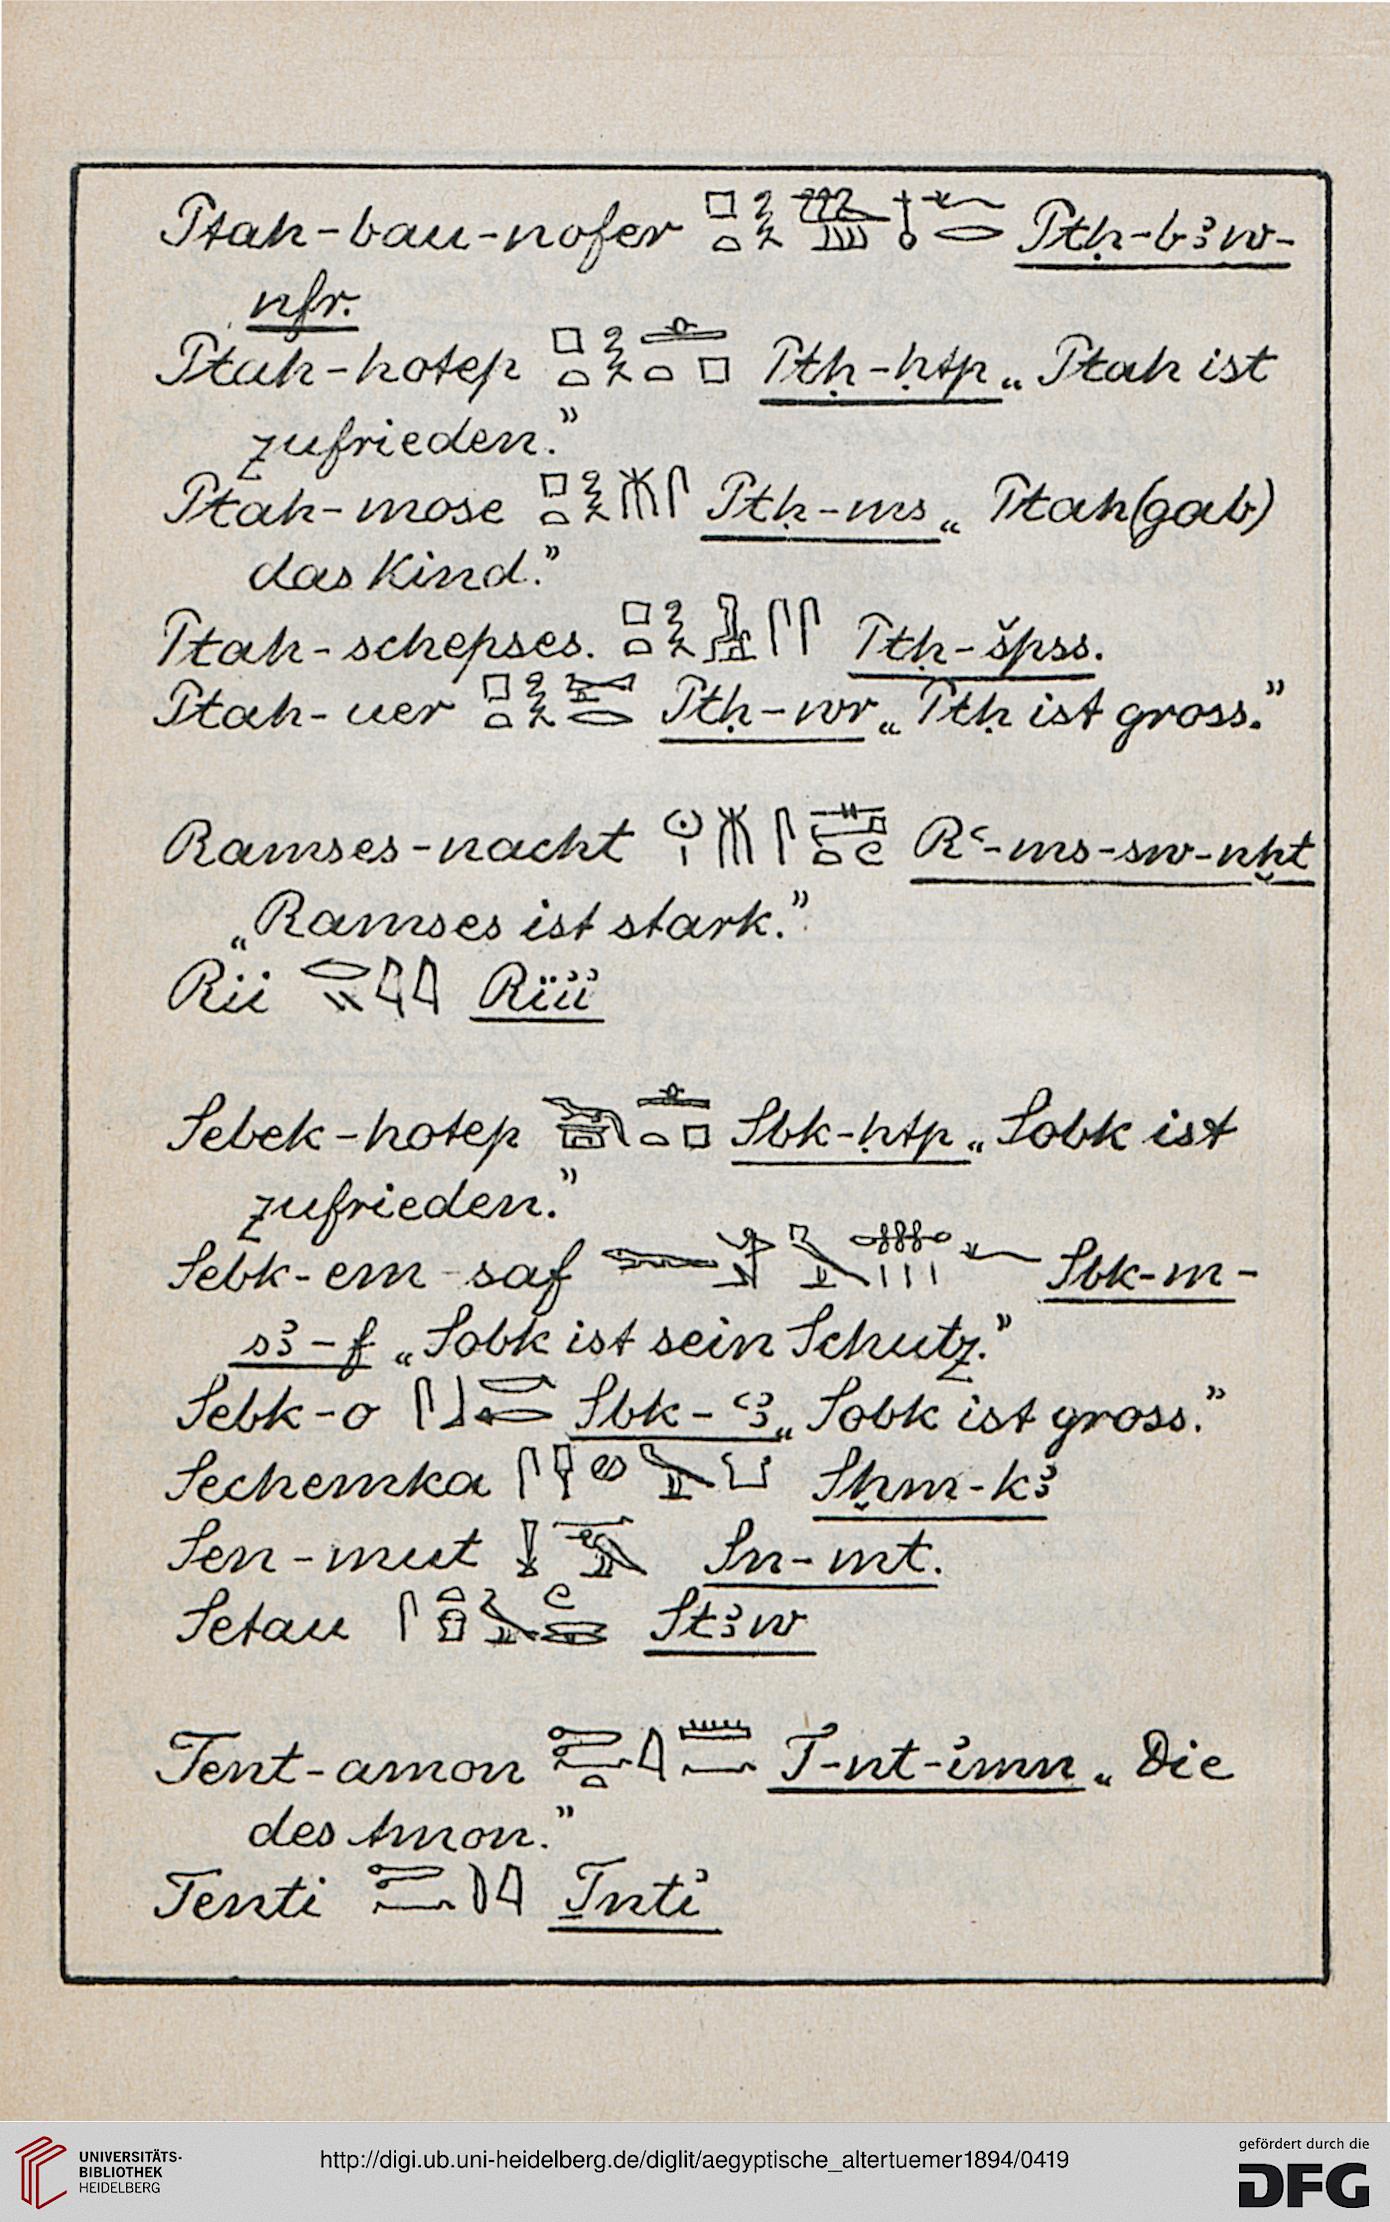 Ptah-bau-nofer Ptḥ-bꜣw-
nfr.
Ptah-hotep Ptḥ-ḥtp „Ptah ist
zufrieden.”
Ptah-mose Ptḥ-ms „Ptah (gab)
das Kind.”
Ptah-schepses. Ptḥ-špss.
Ptah-uer Ptḥ-wr „Ptḥ ist gross.”
Ramses-nacht Rꜥ-ms-sw-nḫt
„Ramses ist stark.”
Rii
Sebek-hotep Sbk-ḥtp „Sobk ist
zufrieden.”
Sebk-em-saf Sbk-m-
sꜣ-f „Sobk ist sein Schutz.”
Sebk-o Sbk-ꜥꜣ „Sobk ist gross.”
Sechemka Sḫm-kꜣ
Sen-mut Sn-mt.
Setau Stꜣw
Tent-amon T-nt-ỉmn „Die
des Amon.”
Tenti Ṯntỉ
UNIVERSITÄTS-
BIBLIOTHEK
HEIDELBERG
http://digi.ub.uni-heidelberg.de/diglit/aegyptische_altertuemer1894/0419
gefördert durch die
DFG